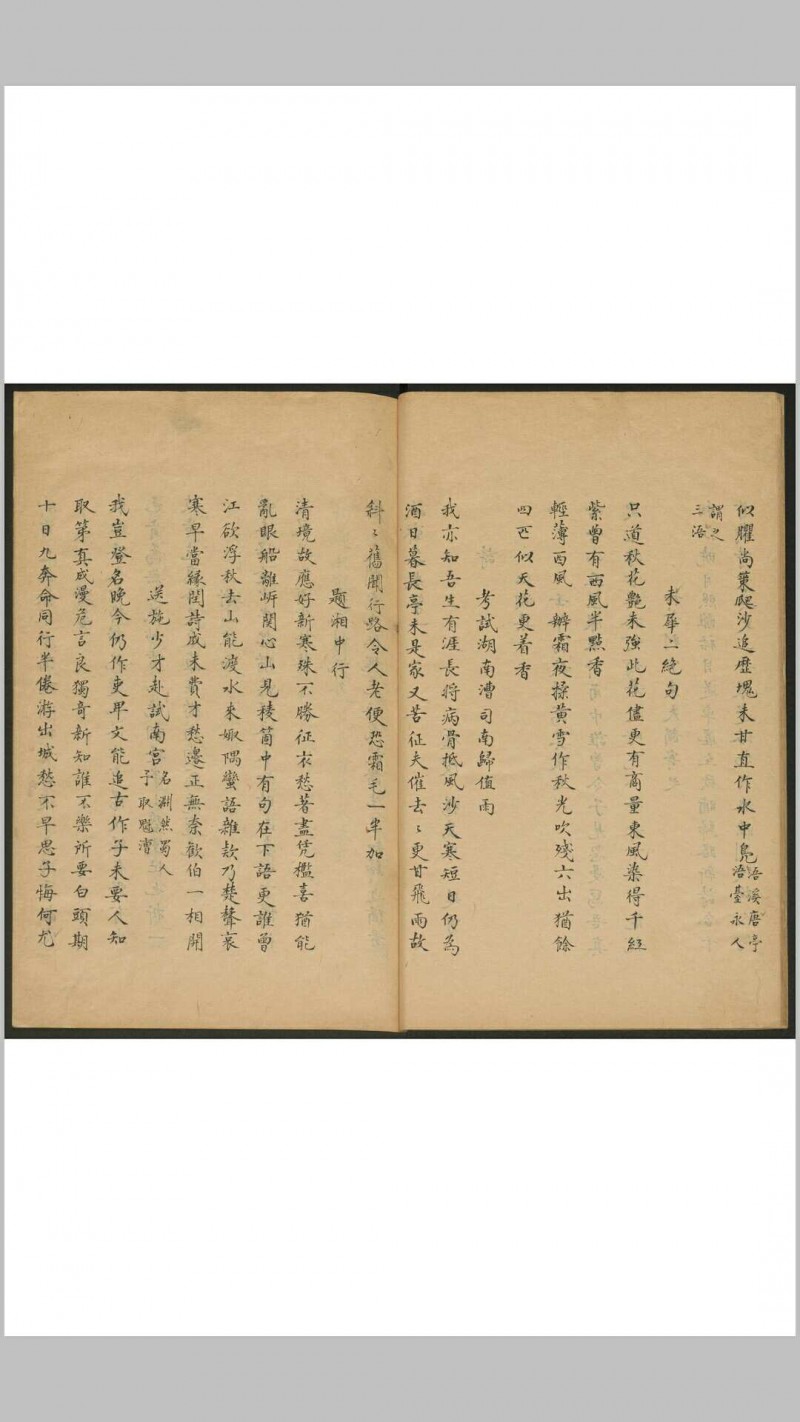 似臞尚策爬沙追歴塊未甘直作水中鳧浯溪唐亭浯臺永人
謂之三浯
木犀二絶句
只道秋花艷未強此花儘更有商量東風染得千紅
紫曾有西風半㸃香
輕薄西風辦霜夜揉黄雪作秋光吹殘六出猶餘
四匹似天花更着香
考試湖南漕司南歸值雨
我亦知吾生有涯長將病骨抵風沙天寒短日仍為
酒日暮長亭未是家又苦征夫催去〻更甘飛雨故
斜〻舊聞行路令人老便恐霜毛一半加
題湘中行
清境故應好新寒殊不勝征衣愁著盡凭檻喜猶能
亂眼船離㟁関心山見稜箇中有句在下語更誰曾
江欲浮秋去山能渡水来娵隅蠻語雜欸乃楚聲哀
寒早當縁閏詩成未費才愁邊正無奈歡伯一相開
送施少才赴試南宮名淵然蜀人予取魁漕
我豈登名晚今仍作吏卑文能追古作子未要人知
取第真成漫危言良獨奇新知誰不樂所要白頭期
十日九奔命同行半倦游出城愁不早思子悔何尤